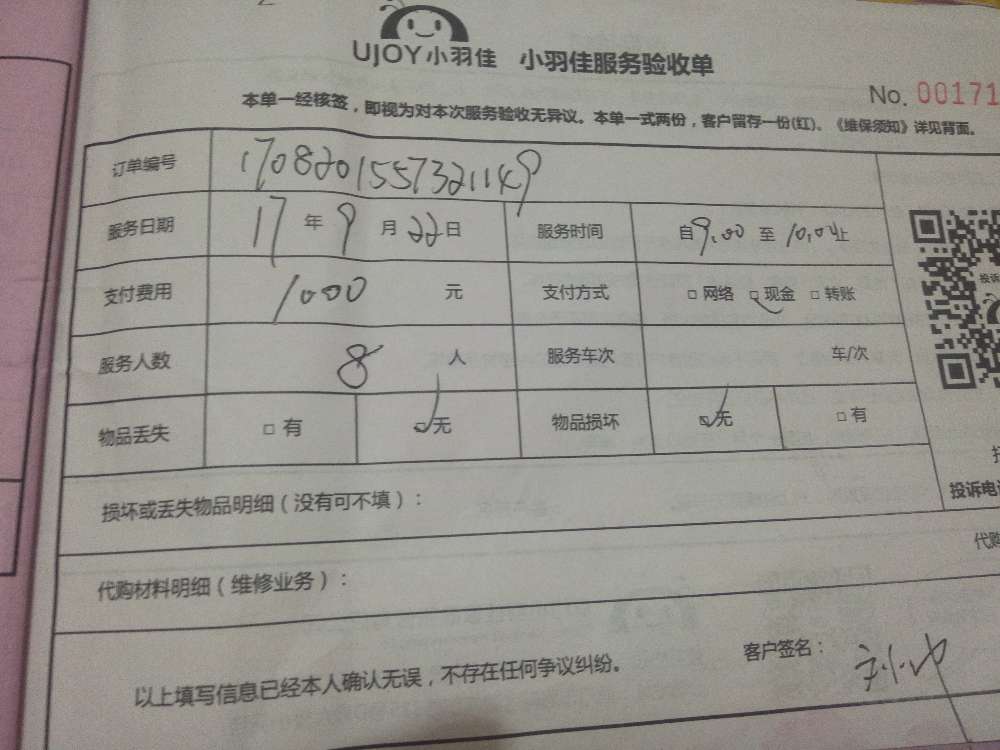 UJOY小羽佳 小羽佳服务验收单
No. 00171
本单一经核签，即视为对本次服务验收无异议。本单一式两份，客户留存一份(红)、《维保须知》详见背面。
订单编号 1708201557321149
服务日期 17年9月22日 服务时间 自9:00至10:00止
支付费用 1000元 支付方式 □网络 □现金 □转账
投诉
服务人数 8人 服务车次 车/次
物品丢失 □有 □无 物品损坏 □无 □有
投诉电
损坏或丢失物品明细（没有可不填）：
代购
代购材料明细（维修业务）：
以上填写信息已经本人确认无误，不存在任何争议纠纷。 客户签名：